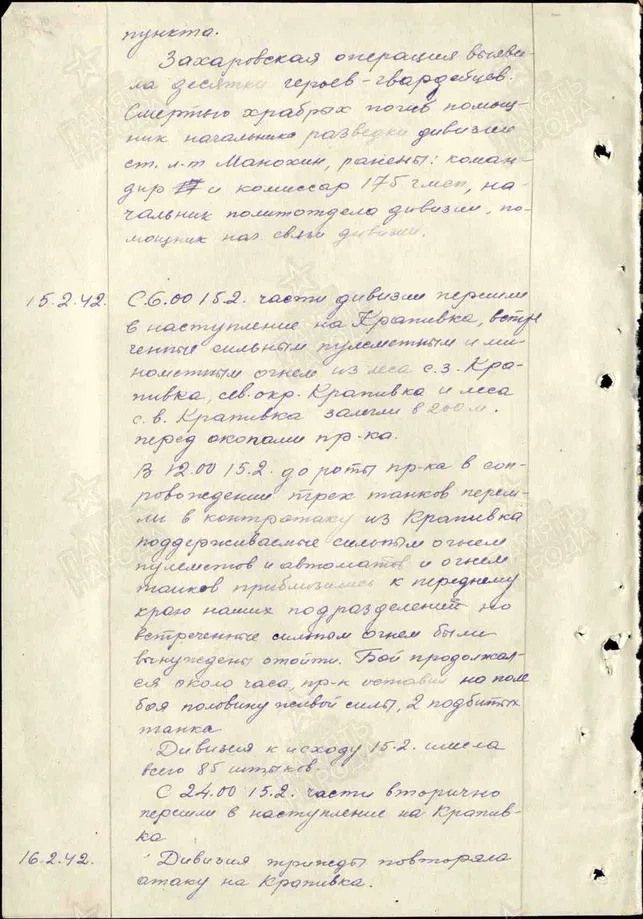 пункта.
Захаровская операция выяви-
ла десятки героев-гвардейцев.
Смертью храбрых погиб помощ-
ник начальника разведки дивизии
ст. л-т Манохин, ранены: коман-
дир и комиссар 175 гмсп, на-
чальник политотдела дивизии, по-
мощник нач связи дивизии.
15.2.42. С 6.00 15.2. части дивизии перешли
в наступление на Крапивка, встре
ченные сильным пулеметным и ми-
нометным огнем из леса с.з. Кра-
пивка, сев. окр. Крапивка и леса
с.в. Крапивка залегли в 200 м.
перед окопами пр-ка.
В 12.00 15.2. до роты пр-ка в соп-
ровождении трех танков переш-
ли в контратаку из Крапивка
поддерживаемые сильным огнем
пулеметов и автоматов и огнем
танков приблизились к переднему
краю наших подразделений но
встреченные сильным огнем были
вынуждены отойти. Бой продолжал-
ся около часа, пр-к оставил на поле
боя половину живой силы, 2 подбитых
танка
Дивизия к исходу 15.2. имела
всего 85 штыков.
С 24.00 15.2. части вторично
перешли в наступление на Крапив-
ка
16.2.42. Дивизия трижды повторяла
атаку на Крапивка.
ПАМЯТЬ
НАРОДА